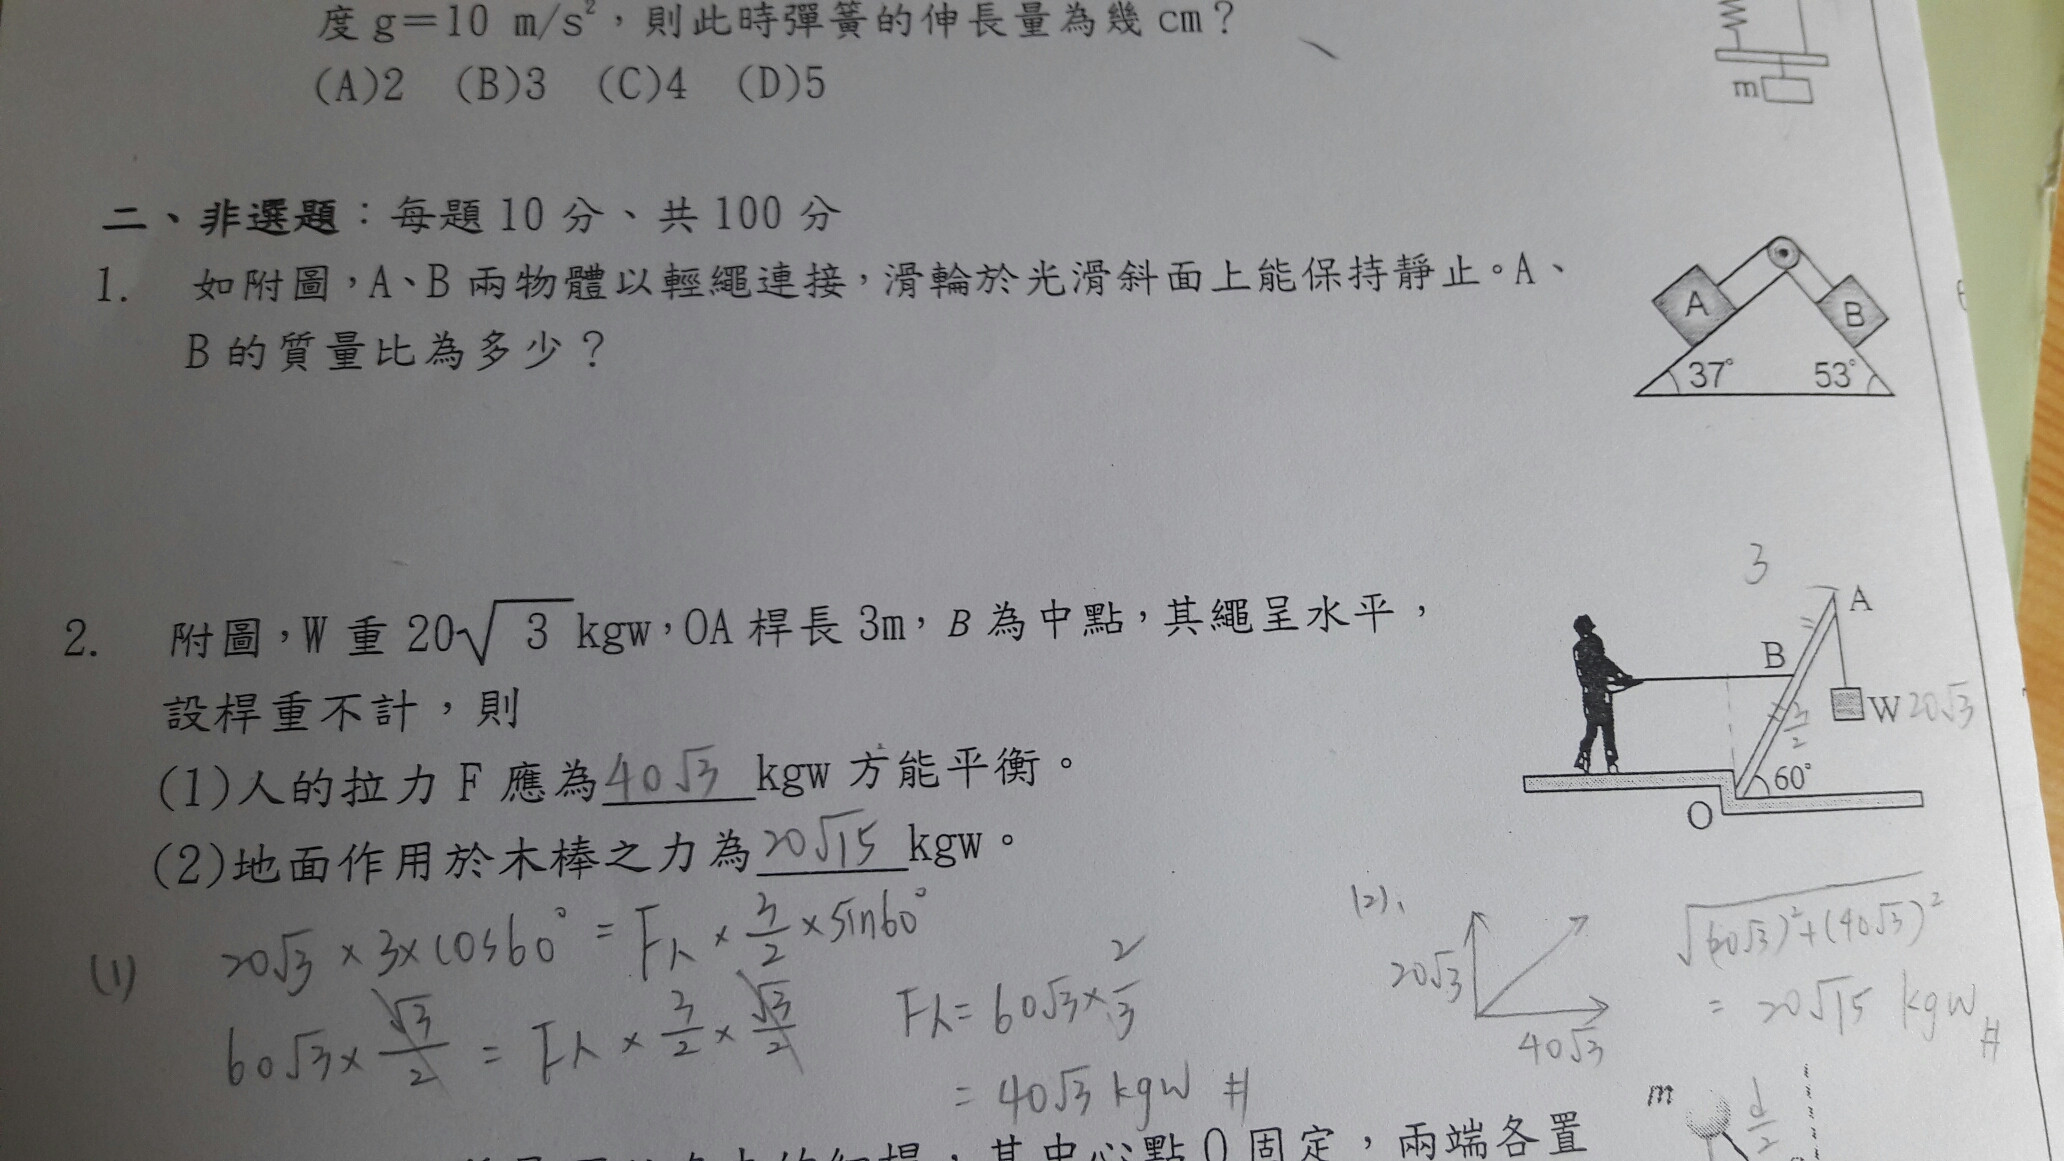 度 g=10 m/s²，則此時彈簧的伸長量為幾 cm？
(A)2 (B)3 (C)4 (D)5
m
二、非選題：每題10分、共100分
1. 如附圖，A、B 兩物體以輕繩連接，滑輪於光滑斜面上能保持靜止。A、
B 的質量比為多少？
A
B
37°
53°
2. 附圖，W 重 20√3 kgw，OA 桿長 3m，B 為中點，其繩呈水平，
設桿重不計，則
(1)人的拉力 F 應為40√3 kgw 方能平衡。
(2)地面作用於木棒之力為20√15 kgw。
3
A
B
W 20√3
3/2
60°
O
(1) 20√3 × 3 × cos60° = F人 × 3/2 × sin60°
60√3 × √3/2 = F人 × 3/2 × √3/2
F人 = 60√3 × 2/3
= 40√3 kgw #
(2)、
20√3
40√3
√(20√3)²+(40√3)²
= 20√15 kgw #
m
d/2
其中心點 O 固定，兩端各置